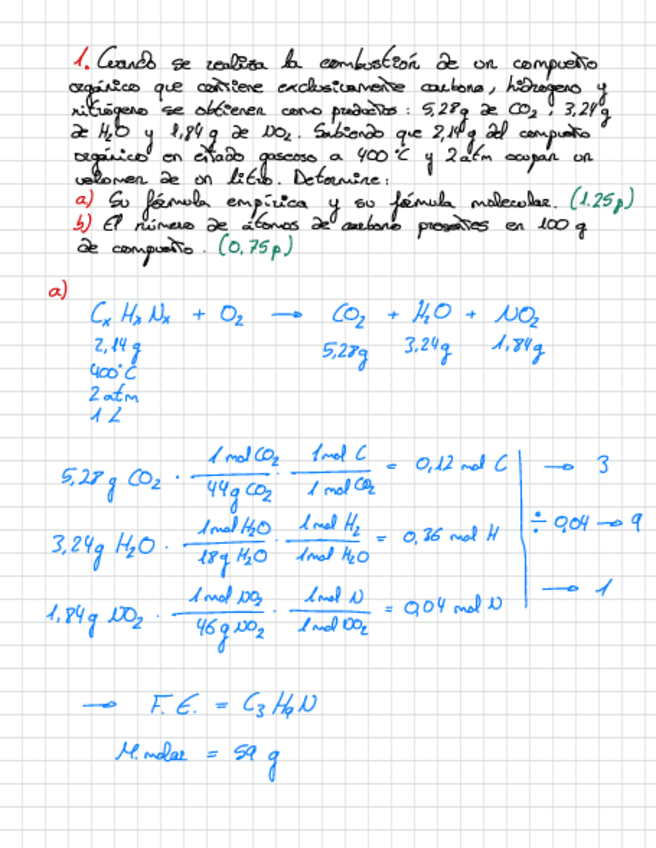 1. Cuando se realiza la combustión de un compuesto
orgánico que contiene exclusivamente carbono, hidrógeno y
nitrógeno se obtienen como productos : 5,28 g de CO₂ ; 3,24 g
de H₂O y 1,84 g de NO₂. Sabiendo que 2,14 g del compuesto
orgánico en estado gaseoso a 400 °C y 2 atm ocupan un
volumen de un litro. Determine:
a) Su fórmula empírica y su fórmula molecular. (1.25p)
b) El número de átomos de carbono presentes en 100 g
de compuesto. (0,75p)
a)
Cₓ Hₓ Nₓ + O₂ → CO₂ + H₂O + NO₂
2,14 g 5,28g 3,24g 1,84g
400°C
2 atm
1 L
5,28 g CO₂ · 1 mol CO₂ / 44 g CO₂ · 1 mol C / 1 mol CO₂ = 0,12 mol C → 3
3,24g H₂O · 1 mol H₂O / 18 g H₂O · 1 mol H₂ / 1 mol H₂O = 0,36 mol H ÷ 0,04 → 9
1,84 g NO₂ · 1 mol NO₂ / 46 g NO₂ · 1 mol N / 1 mol NO₂ = 0,04 mol N → 1
→ F. E. = C₃ H₉ N
M. molar = 59 g